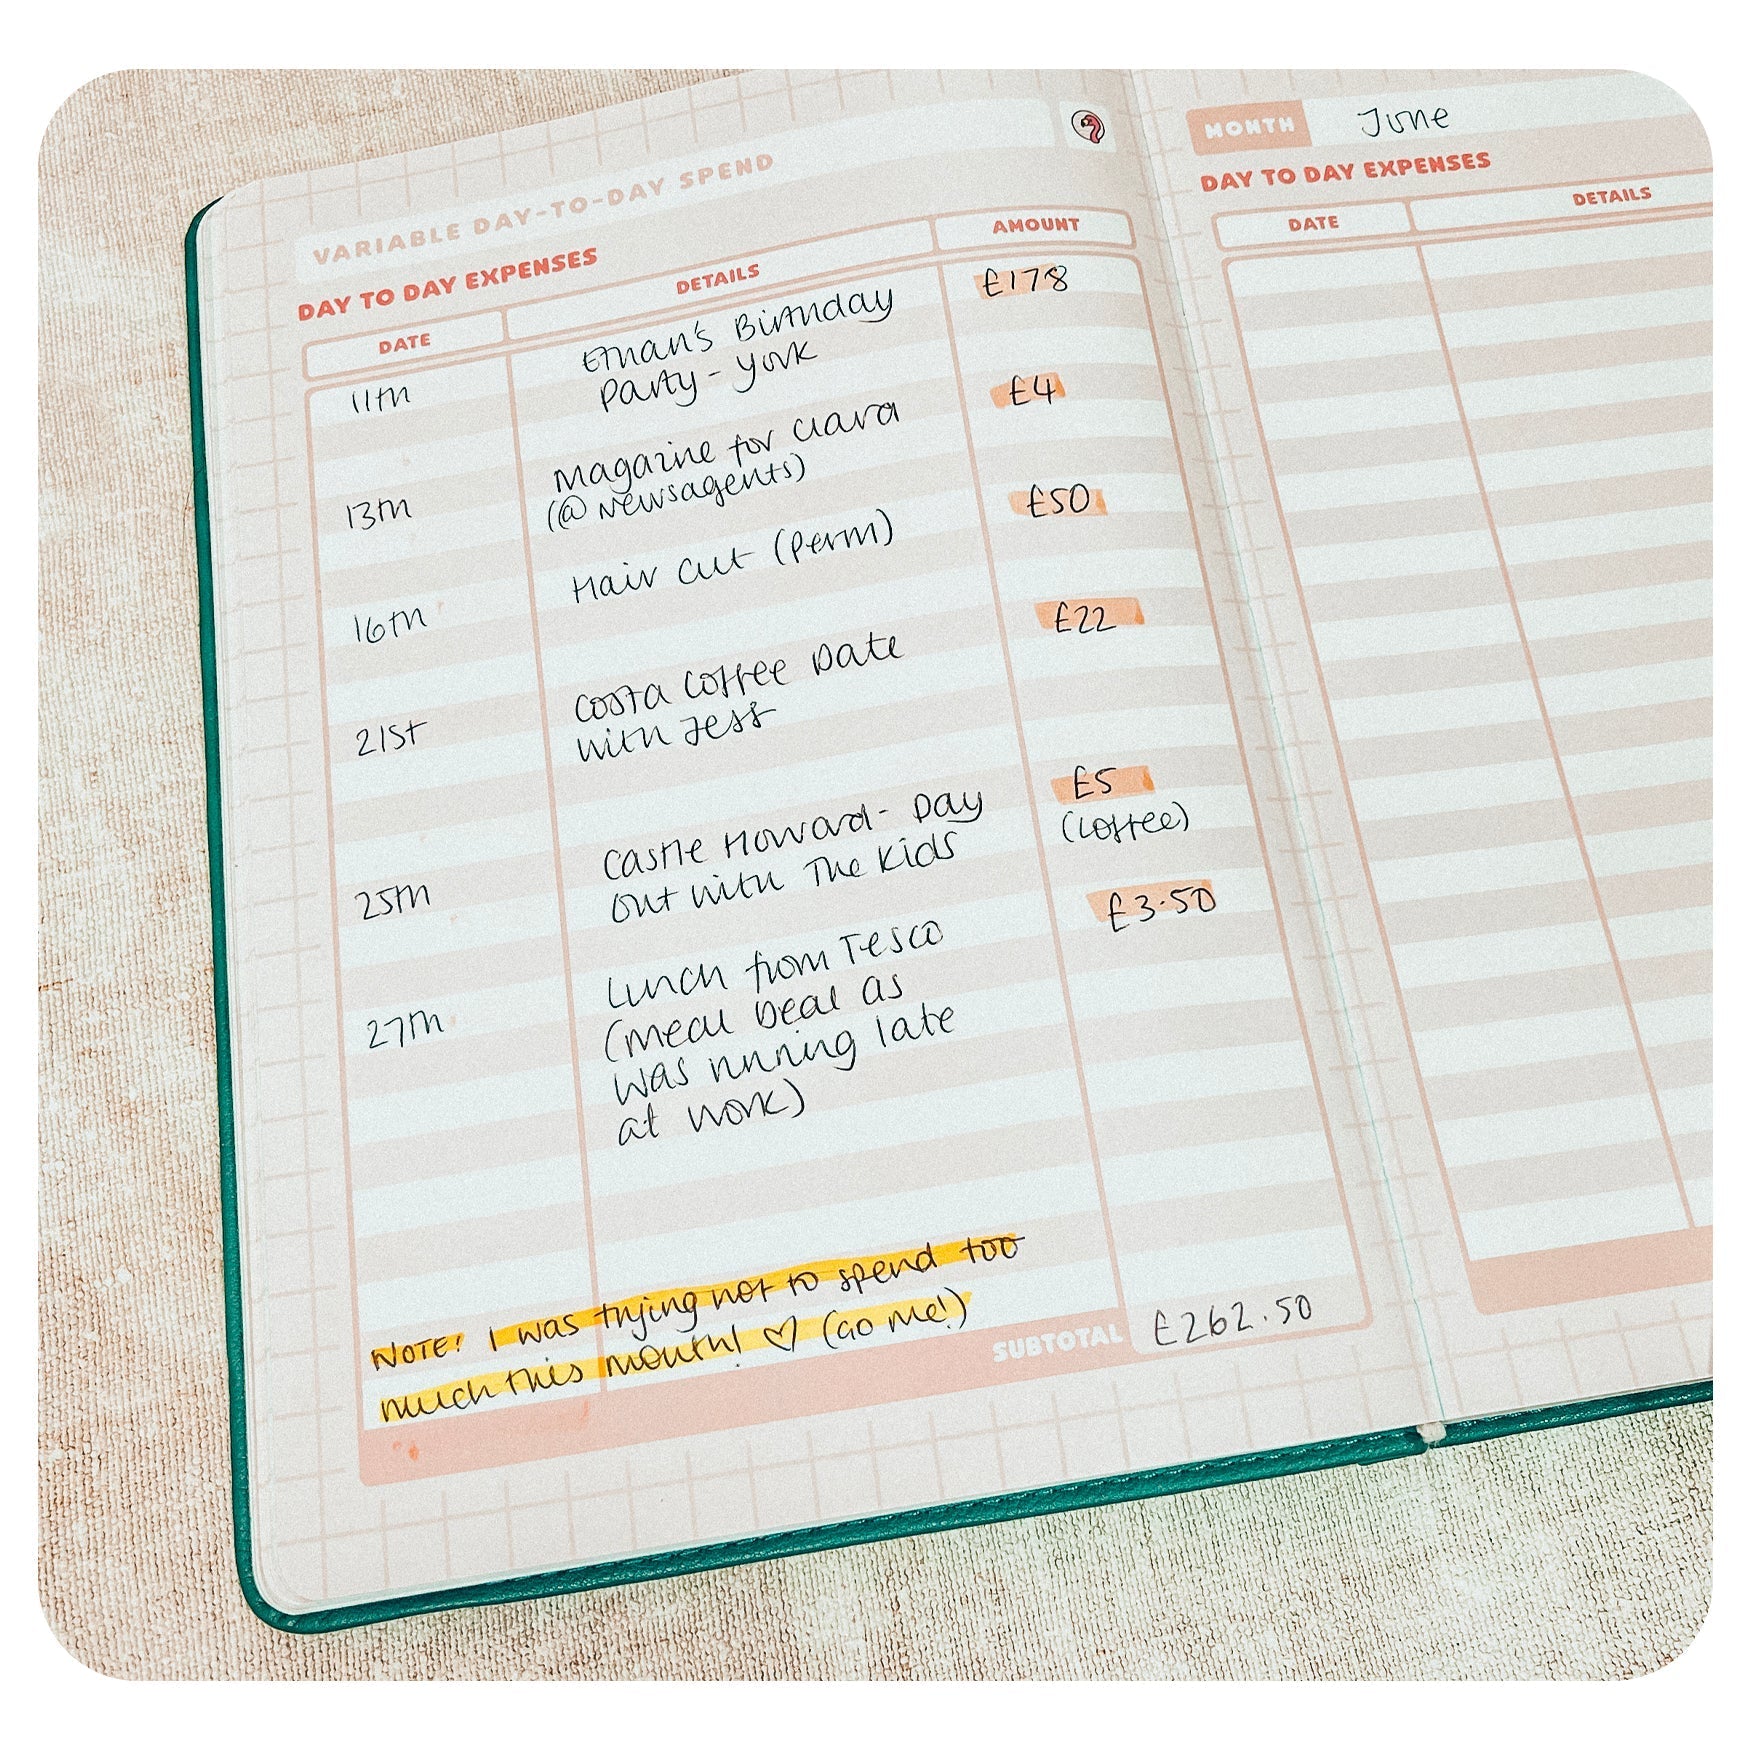 VARIABLE DAY-TO-DAY SPEND
DAY TO DAY EXPENSES
DATE DETAILS AMOUNT
11th Ethan's Birthday £178
Party - York
13th Magazine for Clara £4
(@ Newsagents)
16th Hair cut (Perm) £50
21st Costa Coffee Date £22
with Jess
25th Castle Howard - Day £5
out with The Kids (Coffee)
27th Lunch from Tesco £3.50
(Meal Deal as
was running late
at work)
NOTE! I was trying not to spend too
much this month! ♡ (Go Me!)
SUBTOTAL £262.50
MONTH June
DAY TO DAY EXPENSES
DATE DETAILS